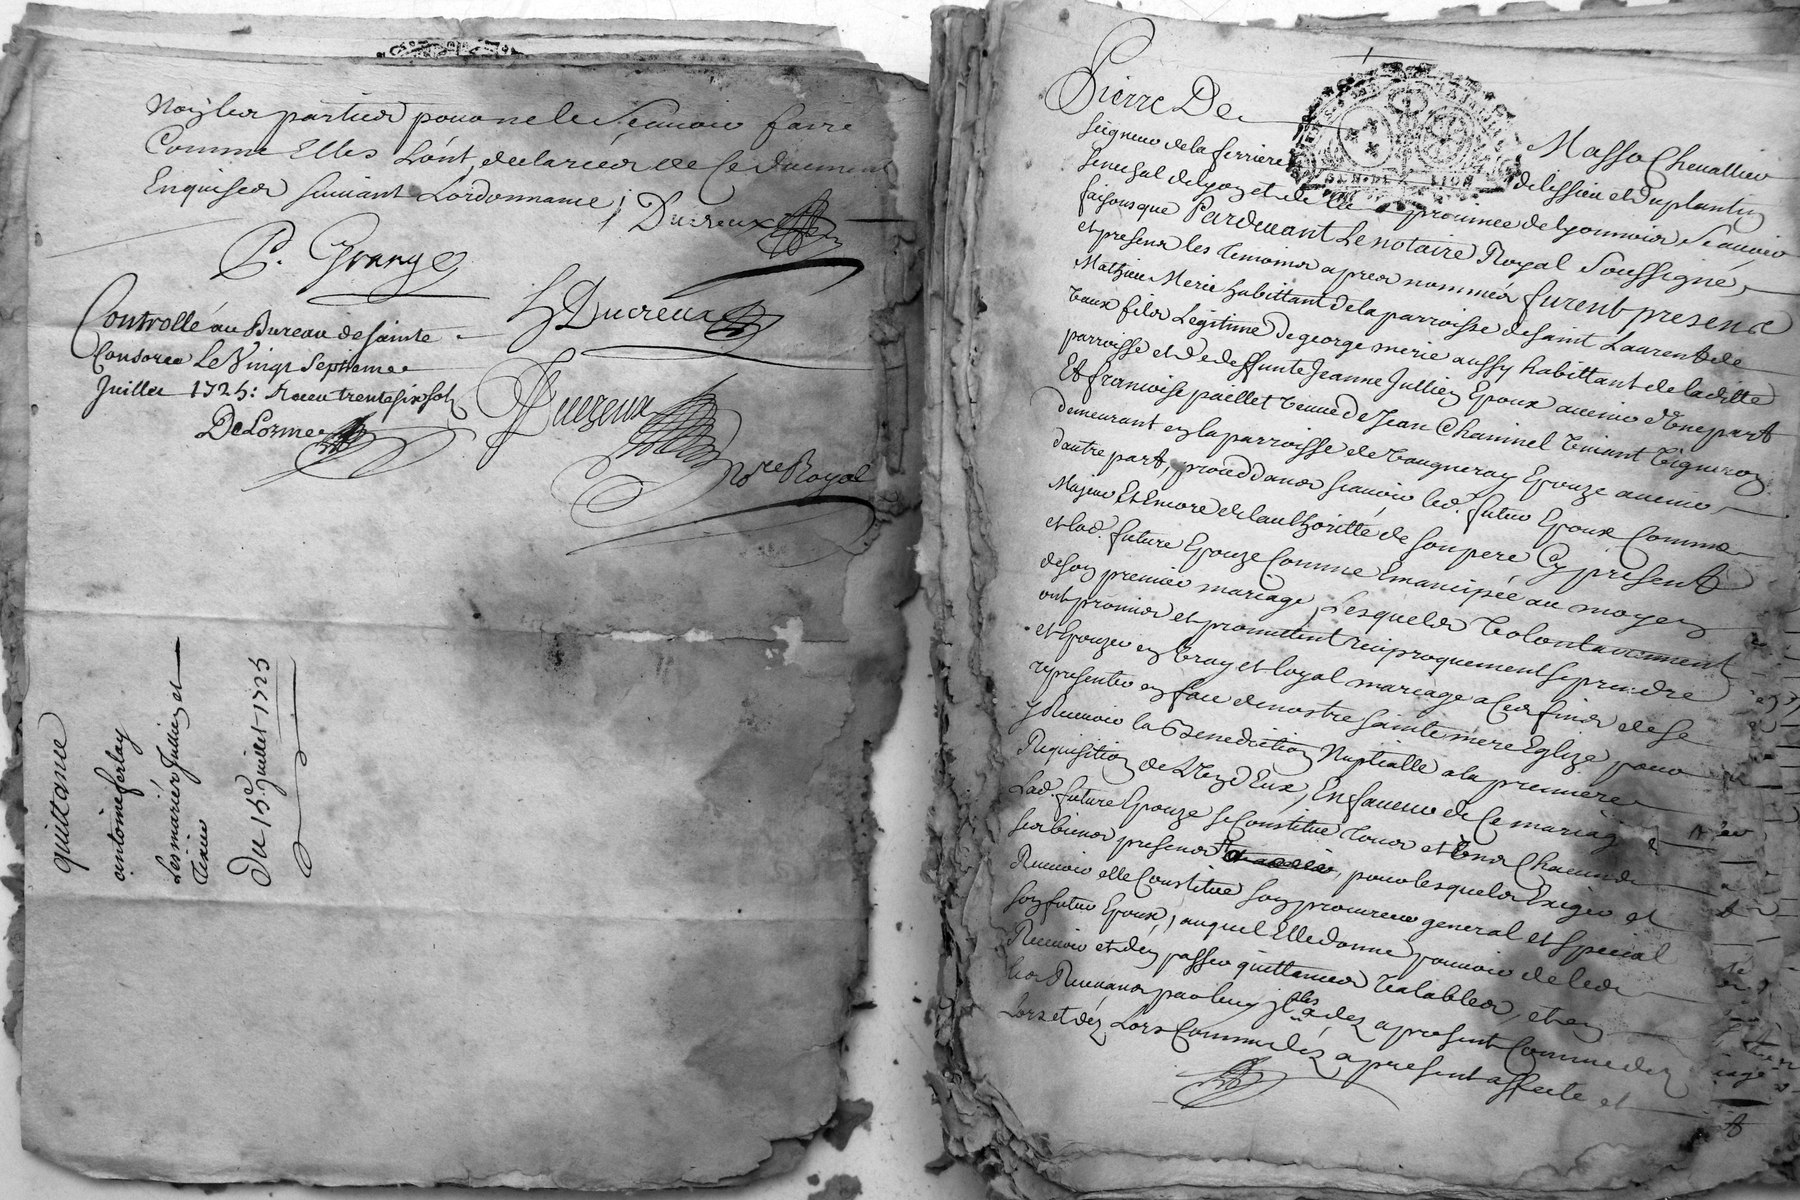 Noz les parties pour ne le Scavoir faire
Comme Elles L'ont declarées de Ce duement
Enquises suivant Lordonnance; Ducreux
P. Grange
h Ducreux
Controllé au Bureau de Sainte
Consorce Le Vingt Septieme
Juillet 1725: Receu trente six sols
DeLorme
Ducreux
No.re Royal
quittance
antoine ferlay
Les mariés Jullien et
Du 15.e Juillet 1725
Pierre De Masso Chevallier
seigneur de la ferriere de lissieu et du plantin
senechal de lyon et de la province de lyonnois Scavoir
faisons que Pardevant Le notaire Royal Soussigné,
et presens les temoins apres nommés furent presens
Mathieu Merie habittant de la parroisse de saint Laurent de
Vaux fils Legitime de george merie aussy habittant de laditte
parroisse et de deffunte Jeanne Jullien Epoux avenir d'Une part
Et francoise paillet veuve de Jean Chaninel vivant Vigneron
demeurant en la parroisse de Vaugneray Epouze avenir
dautre part, proceddans scavoir led. futur Epoux Comme
Majeur Et Encore de l'authoritté de son pere Cy present
et lad. future Epouze Comme Emancipée au moyen
de son premier mariage, Lesquels Volontairement
ont promis et promettent reciproquement se prendre
et Epouzer en vray et loyal mariage a Ces fins de se
representer en face de nostre sainte mere Eglize pour
y Recevoir la Benediction Nuptialle a la premiere
Requisition de L'Un d'Eux, En faveur de Ce mariage
Lad. future Epouze se Constitue tous et Uns Chacuns
ses biens presens, pour lesquels Exiger et
Recevoir elle Constitue son procureur general et special
son futur Epoux, auquel Elle donne pouvoir de les
Recevoir et d'en passer quittances Valables, et en
les Recevant par luy il les a dez a present Comme dez
Lors et dez Lors Comme dez a present affecte et